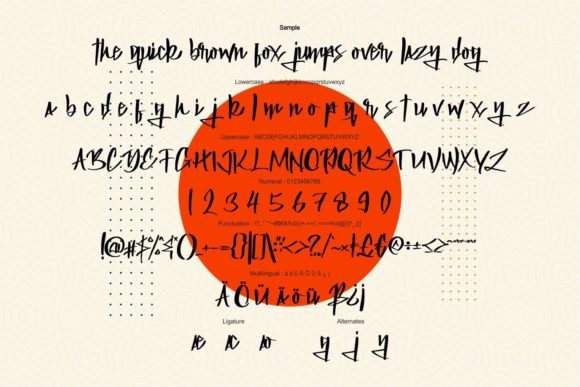 Sample
the quick brown fox jumps over lazy dog
Lowercase : abcdefghijklmnopqrstuvwxyz
a b c d e f g h i j k l m n o p q r s t u v w x y z
Uppercase : ABCDEFGHIJKLMNOPQRSTUVWXYZ
ABCDEFGHIJKLMNOPQRSTUVWXYZ
Numeral : 0123456789
1 2 3 4 5 6 7 8 9 0
Punctuation :
Multilingual : ä ö ü Ä Ö Ü ß ¿ ¡
Ä Ö Ü ä ö ü ß ¿ ¡
Ligature
Alternates
y j y